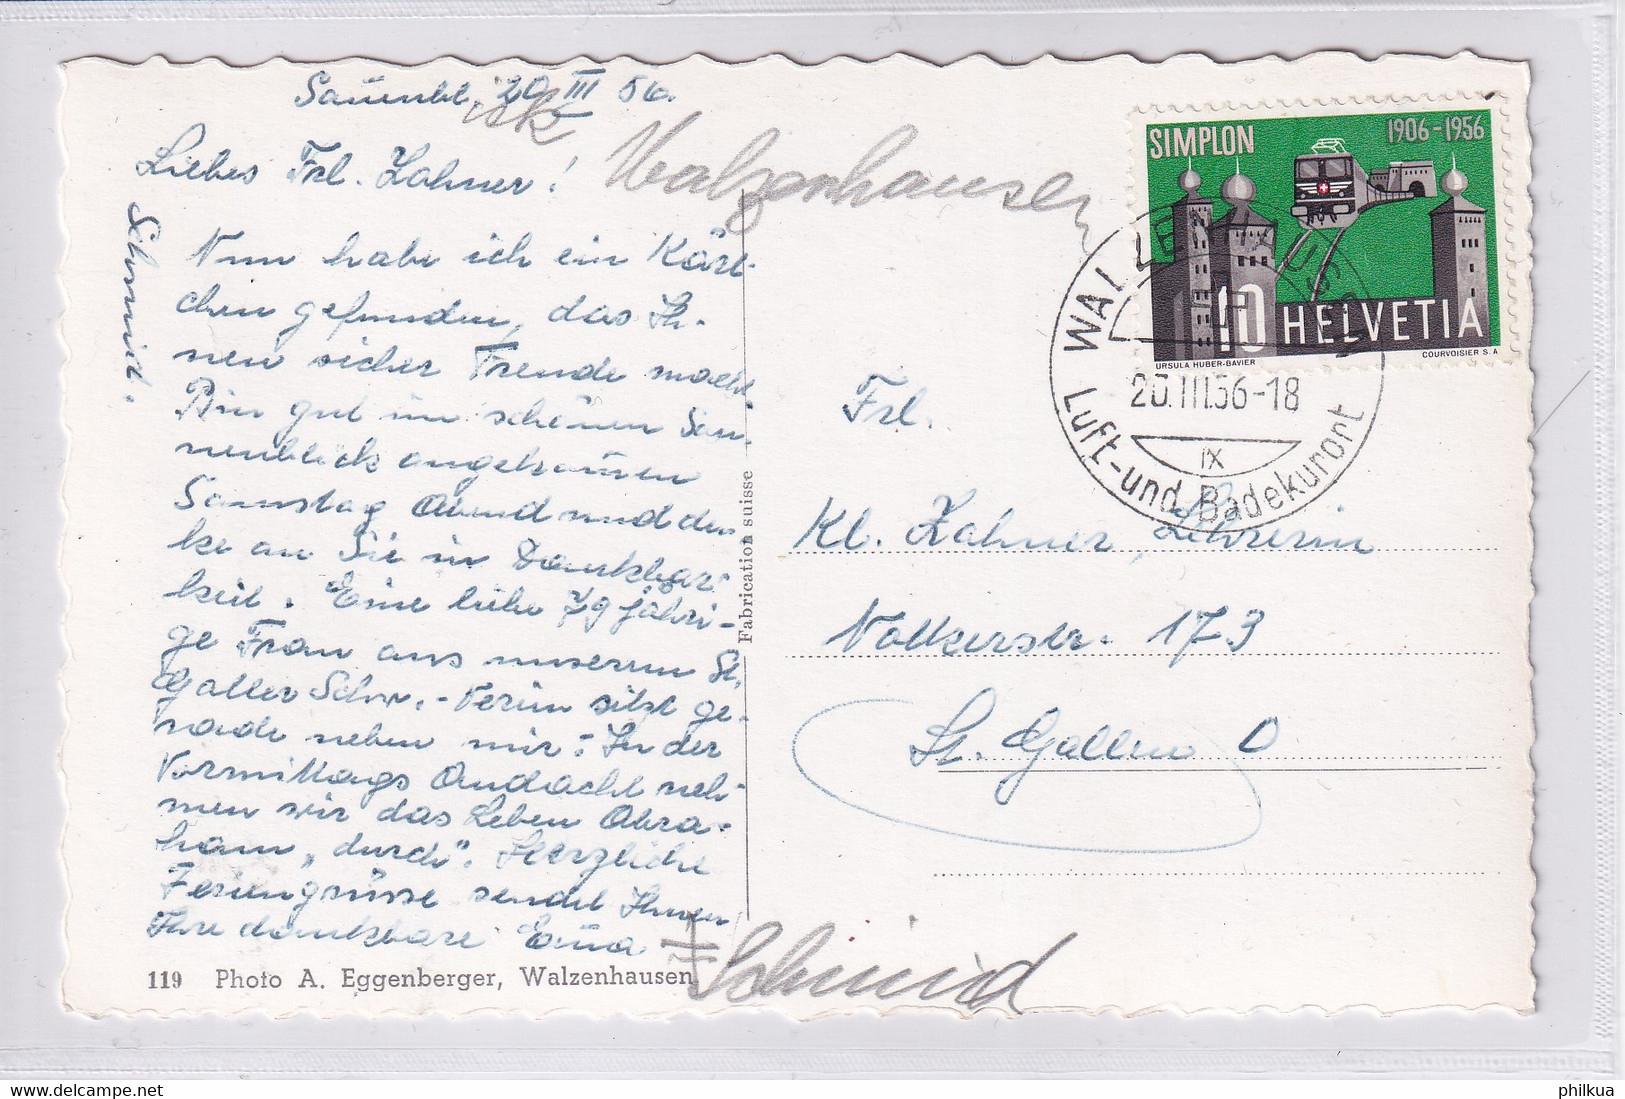 20 III 56.
Walzenhausen
Liebes Frl. Zahner!
Nun habe ich ein Kärt-
chen gefunden, das Ih-
nen sicher Freude macht.
Bin gut im schönen Son-
nenblick angekommen
Samstag Abend und den-
ke an Sie in Dankbar-
keit. Eine liebe 79 jähri-
ge Frau aus unserem St.
Galler Schw.-Verein sitzt ge-
rade neben mir. In der
Vormittags Andacht neh-
men wir das Leben Abra-
ham „durch". Herzliche
Feriengrüsse sendet Ihnen
Ihre dankbare Emma
Schmid.
Schmid
119 Photo A. Eggenberger, Walzenhausen
Fabrication suisse
SIMPLON 1906-1956
10 HELVETIA
URSULA HUBER-BAVIER COURVOISIER S.A
WALZENHAUSEN
20.III.56-18
IX
Luft- und Badekurort
Frl.
Kl. Zahner, Lehrerin
Notkerstr. 173
St. Gallen O
philkua